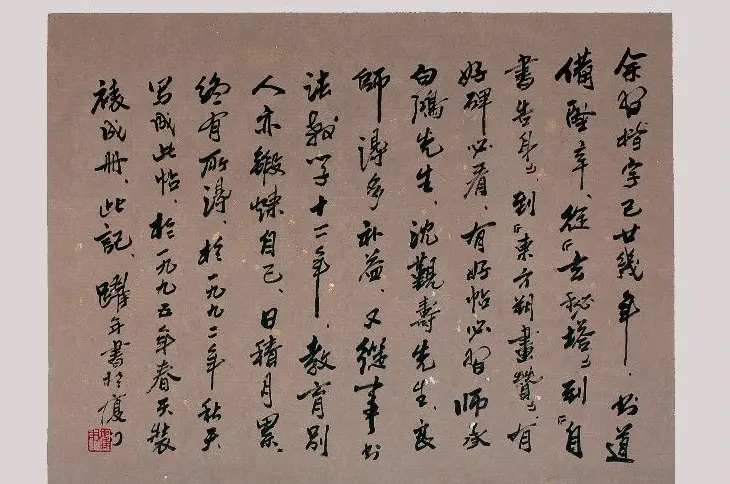 余習楷字已廿幾年，书道
備歷辛，從『玄秘塔』到『自
書告身』到『東方朔畫贊』，有
好碑必看，有好帖必習，师承
白鴻先生，沈觀壽先生，良
師，得多补益，又從事书
法教学十二年，教育別
人亦鍛煉自己，日積月累，
终有所得，於一九九二年秋天
写成此帖，於一九九五年春天装
裱成册，此記，躍年書於厦门